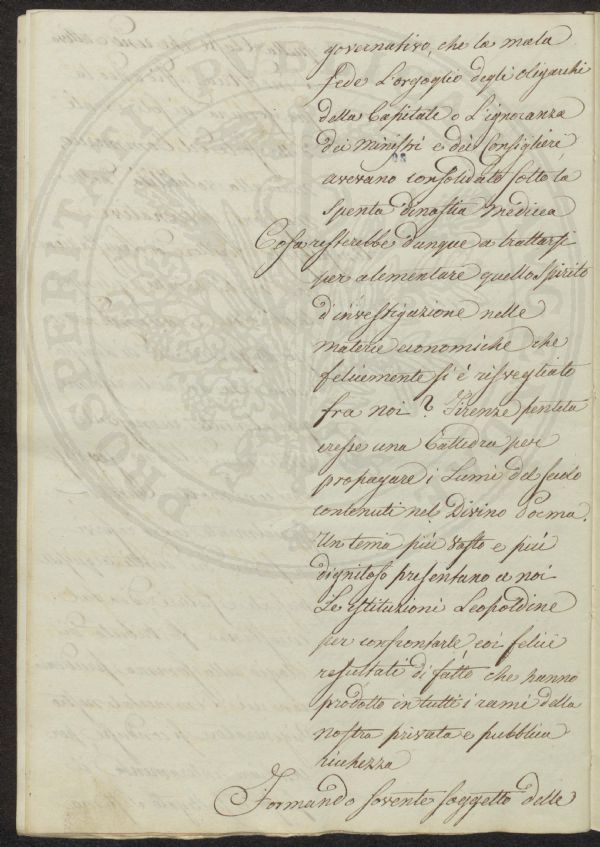 governativo, che la mala
fede L'orgoglio degli oligarchi
della Capitale o L'ignoranza
dei Ministri e dei Consiglieri
avevano consolidato sotto la
spenta dinastia Medicea
Cosa resterebbe dunque a trattarsi
per alementare quello spirito
d'investigazione nelle
materie economiche che
felicemente si è risvegliato
fra noi? Firenze pentita
eresse una Cattedra per
propagare i Lumi del secolo
contenuti nel Divino Poema.
Un tema più vasto e più
dignitoso presentano a noi
Le istituzioni Leopoldine
per confrontarle coi felici
resultati di fatto che hanno
prodotto in tutti i rami della
nostra privata e pubblica
richezza
Formando sovente soggetto delle